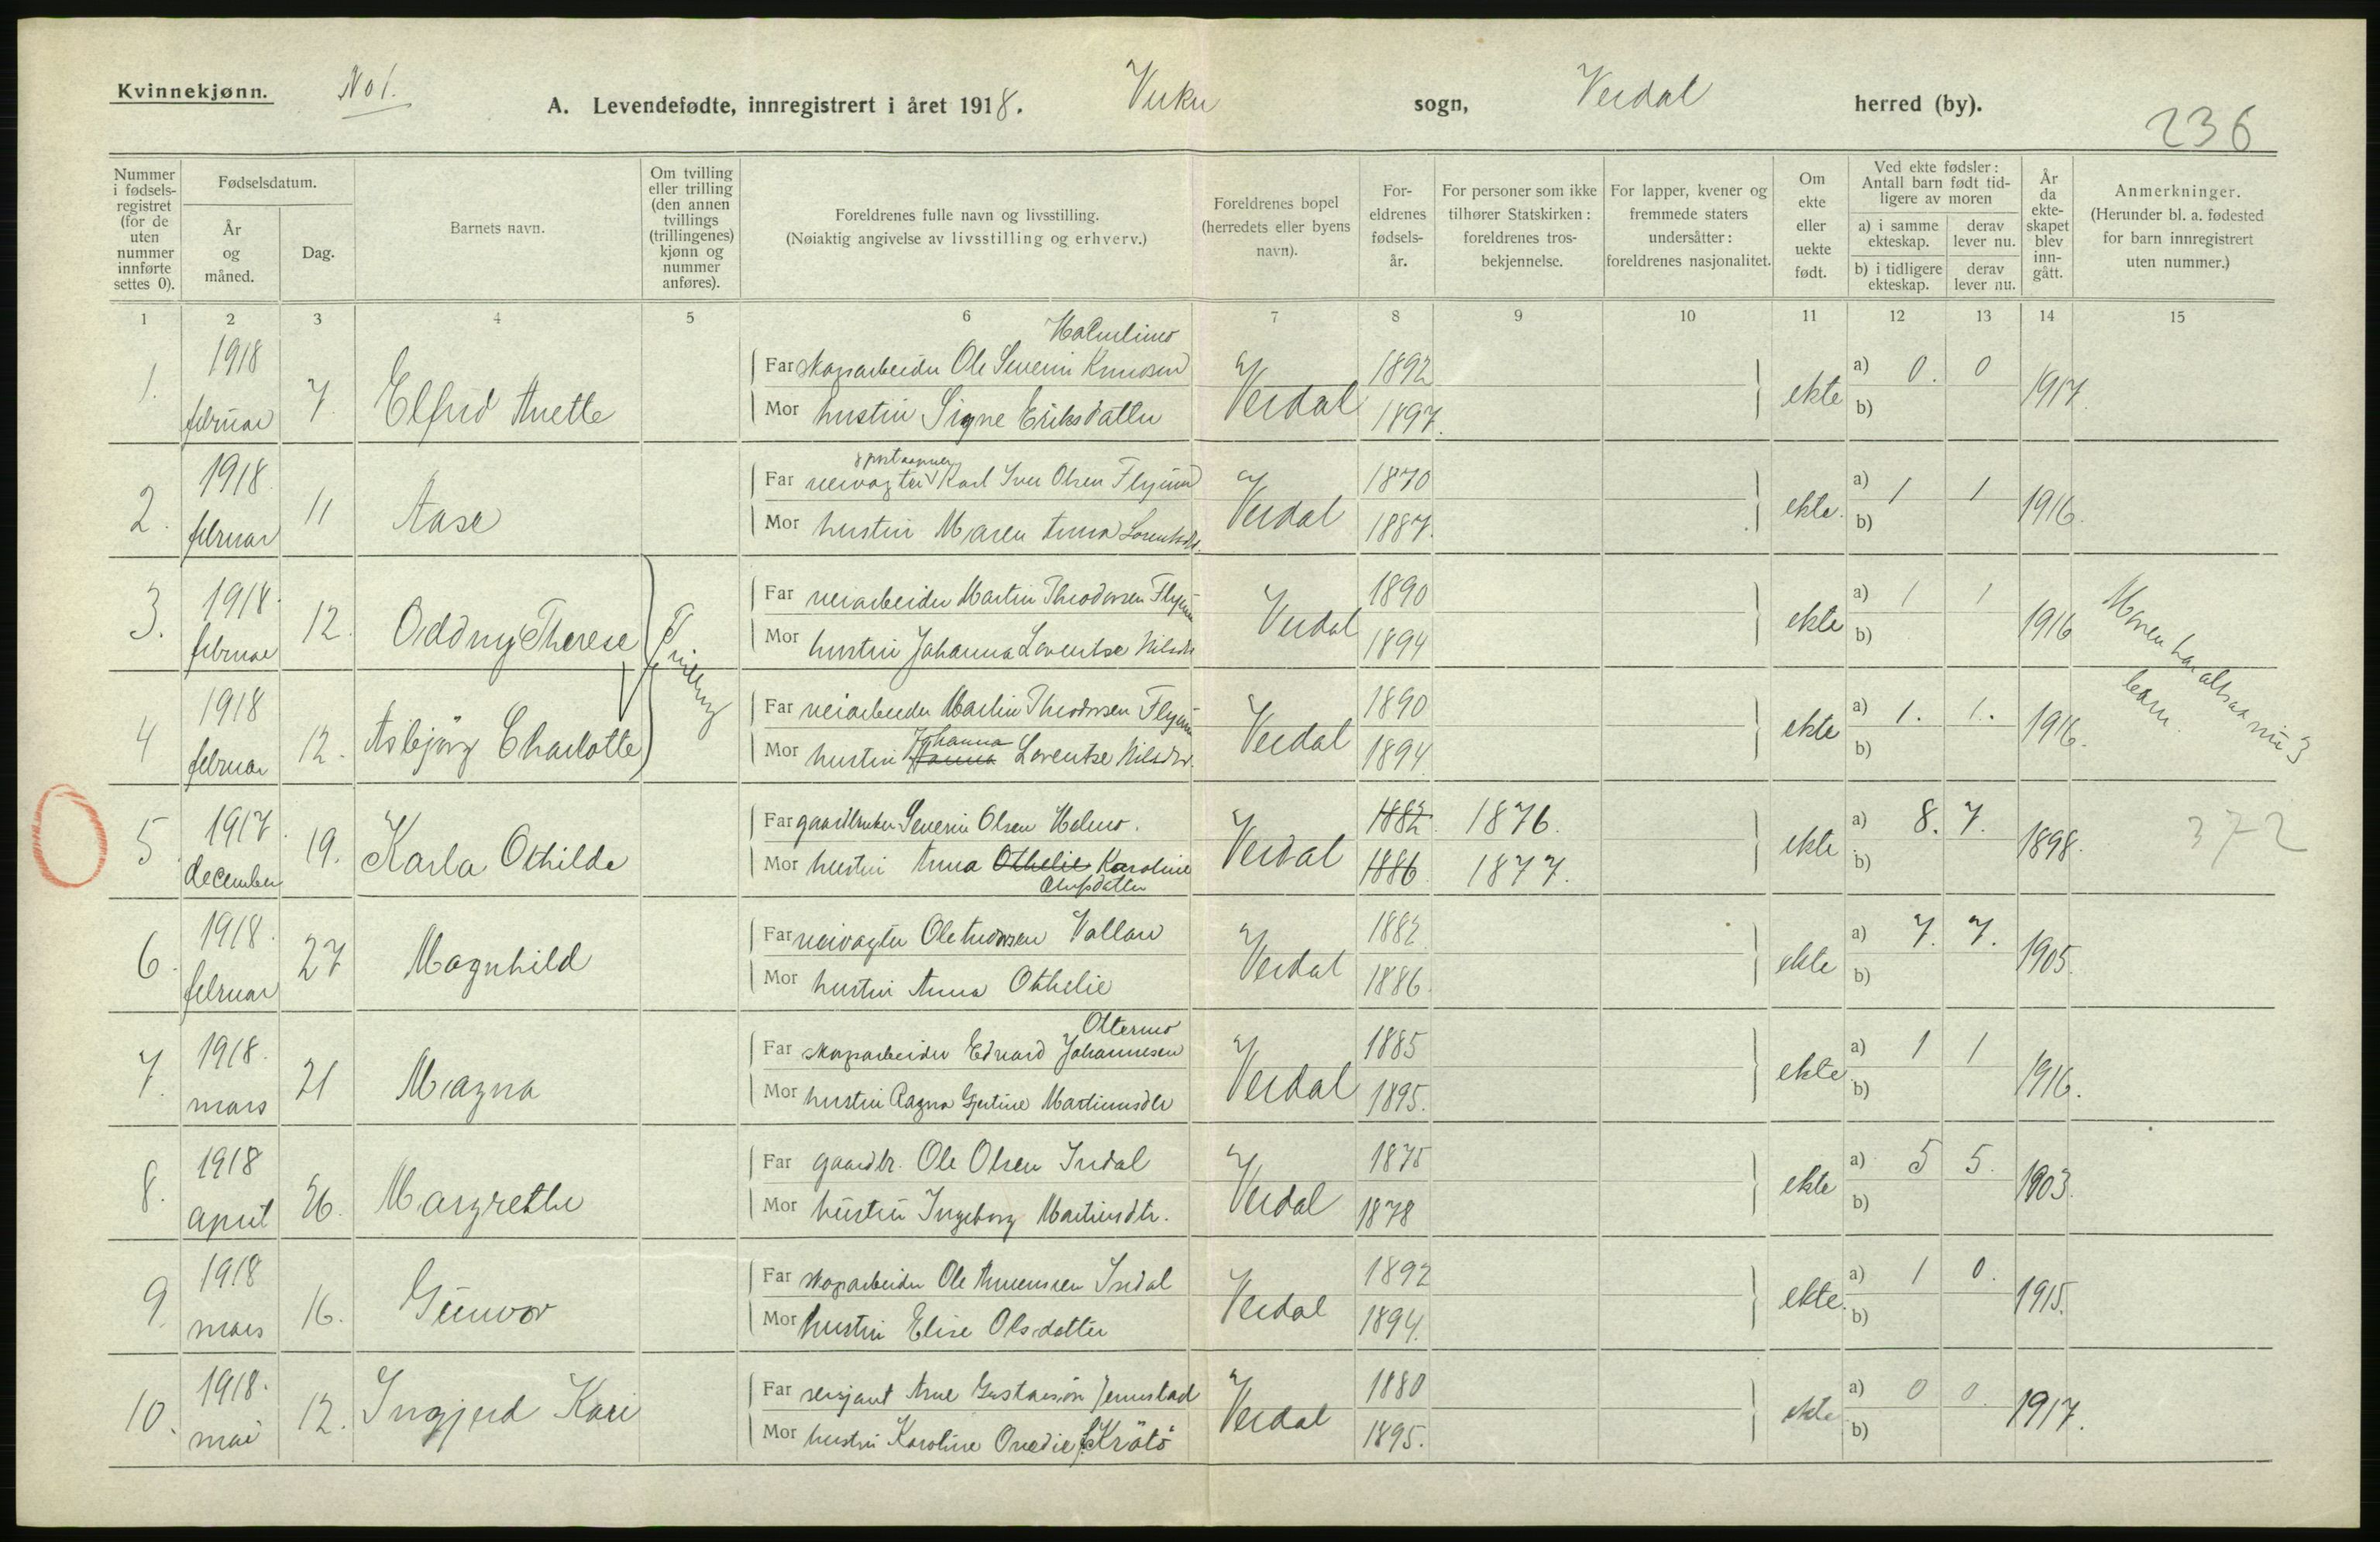 Kvinnekjønn. No 1.
A. Levendefødte, innregistrert i året 1918. Vuku sogn, Verdal herred (by).
236
Nummer i fødsels-registret (for de uten nummer innførte settes 0).
Fødselsdatum.
År og måned.
Dag.
Barnets navn.
Om tvilling eller trilling (den annen tvillings (trillingenes) kjønn og nummer anføres).
Foreldrenes fulle navn og livsstilling.
(Nøiaktig angivelse av livsstilling og erhverv.)
Foreldrenes bopel (herredets eller byens navn).
For-eldrenes fødsels-år.
For personer som ikke tilhører Statskirken: foreldrenes tros-bekjennelse.
For lapper, kvener og fremmede staters undersåtter: foreldrenes nasjonalitet.
Om ekte eller uekte født.
Ved ekte fødsler: Antall barn født tid-ligere av moren
a) i samme ekteskap. derav lever nu.
b) i tidligere ekteskap. derav lever nu.
År da ekte-skapet blev inn-gått.
Anmerkninger.
(Herunder bl. a. fødested for barn innregistrert uten nummer.)
1 2 3 4 5 6 7 8 9 10 11 12 13 14 15
Holmlimo
1. 1918 februar 7. Elfrid Anette
Far skogarbeider Ole Severin Knudsen 1892
Mor hustru Signe Eriksdatter Verdal 1897. ekte a) 0. 0 b) 1917.
2. 1918 februar 11 Aase
Far veivogter Karl Iver Olsen Flyum 1870
Mor hustru Maren Anna Lorentsdtr. Verdal 1887. ekte. a) 1 1 b) 1916.
3. 1918. februar 12. Oddny Therese Tvilling
Far veiarbeider Martin Theodorsen Flyum 1890
Mor hustru Johanna Lorentse Nilsdtr Verdal 1894 ekte a) 1 1 b) 1916
Moren har altsaa nu 3 barn.
4 1918 februar 12. Asbjörg Charlotte
Far veiarbeider Martin Theodorsen Flyum 1890
Mor hustru Hanna Johanna Lorentse Nilsdtr. Verdal 1894. ekte a) 1. 1. b) 1916.
5 1917. december 19. Karla Othilde
Far gaardbruker Severin Olsen Holmo. 1882. 1876.
Mor hustru Anna Othelie Karoline Olufsdatter Verdal 1886. 1877. ekte a) 8. 7. b) 1898. 372
6. 1918. februar 27 Magnhild
Far veivogter Ole Andorsen Vollan 1882.
Mor hustru Anna Othelie Verdal 1886. ekte a) 7. 7. b) 1905.
Ottermo
7. 1918. mars 21 Magna
Far skogarbeider Edvard Johannesen 1885
Mor hustru Ragna Gjertine Martinusdtr Verdal 1895. ekte a) 1 1 b) 1916.
8. 1918 april 26. Margrethe
Far gaardbr. Ole Olsen Indal 1875
Mor hustru Ingeborg Martinsdtr. Verdal 1878 ekte a) 5 5. b) 1903.
9. 1918 mars 16. Gunvor
Far skogarbeider Ole Indal 1892
Mor hustru Elise Olsdatter Verdal 1894. ekte. a) 1 0. b) 1915.
10. 1918. mai 12. Ingjerd Kari
Far sersjant Arne Gustavson Jermstad 1880
Mor hustru Karoline Ovedie f. Kråtö Verdal 1895. ekte a) 0 0. b) 1917.